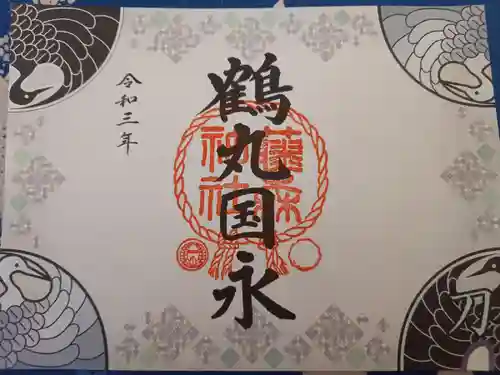 鶴丸国永
藤森
神社
令和三年
刀